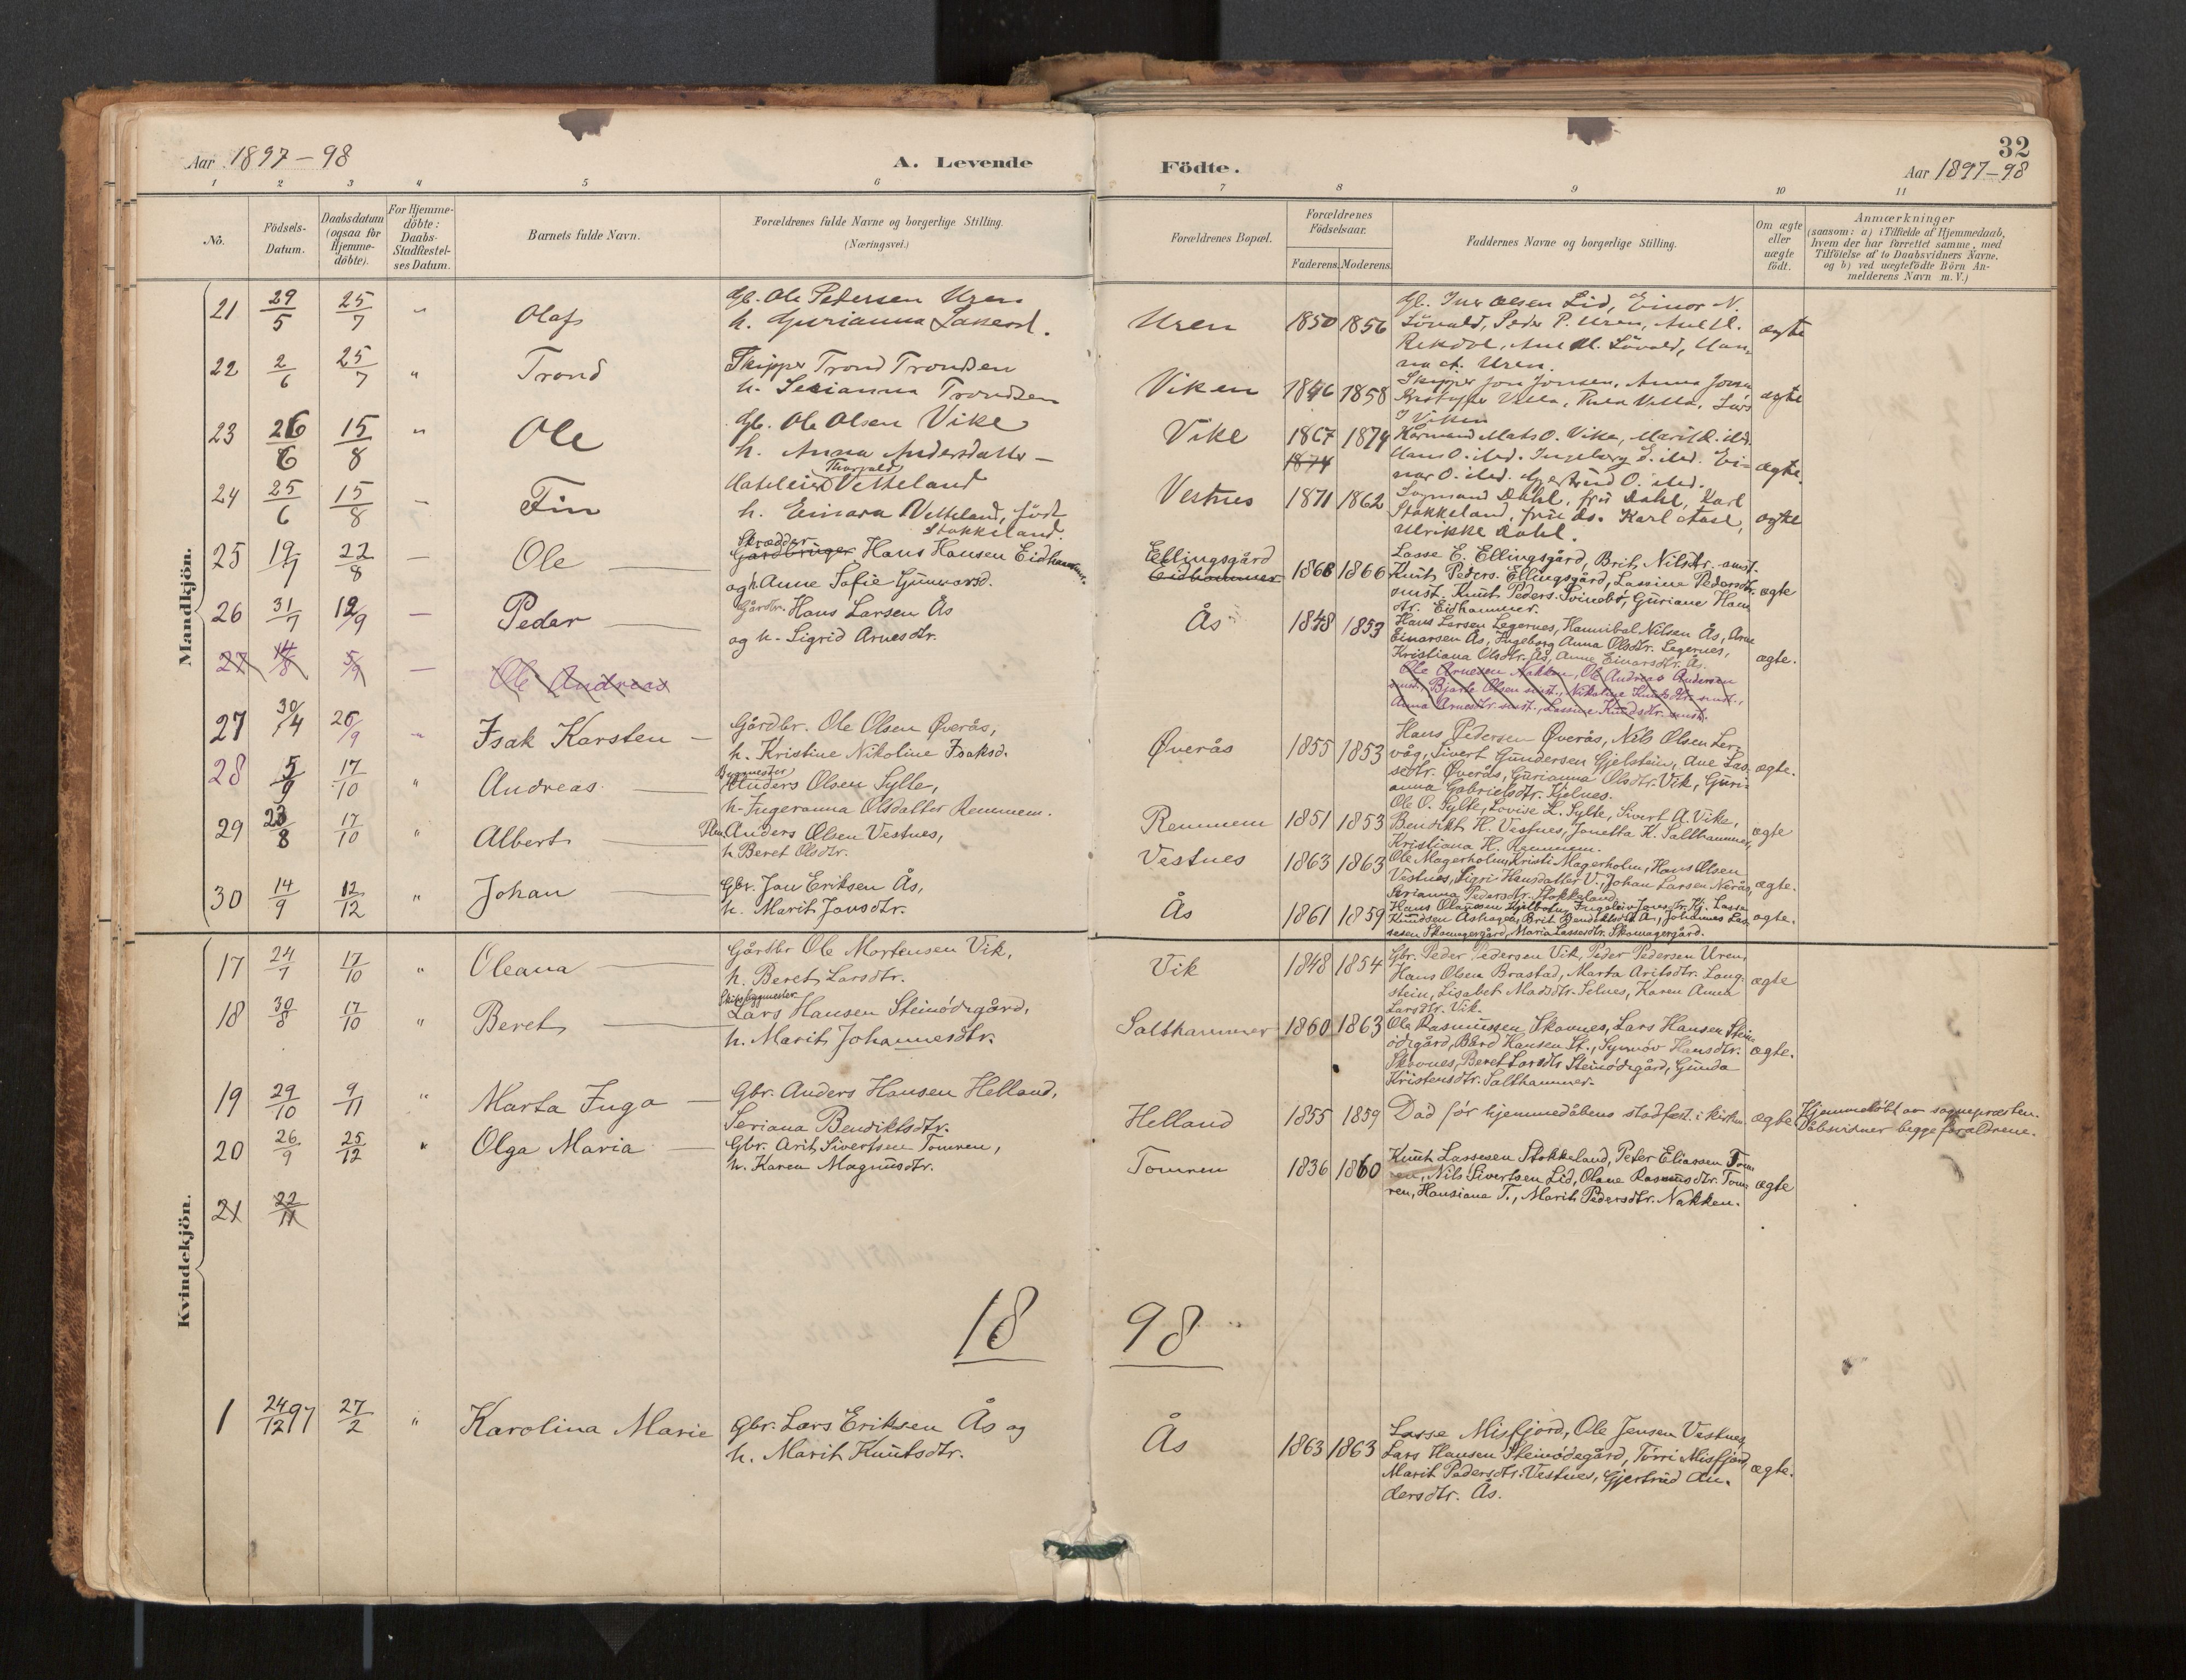 Aar 1897-98
A. Levende
Födte.
32
Aar 1897-98
1 2 3 4 5 6 7 8 9 10 11
No.
Födsels-
Datum.
Daabsdatum
(ogsaa for
Hjemme-
döbte).
For Hjemme-
döbte:
Daabs-
Stadfæstel-
ses Datum.
Barnets fulde Navn.
Forældrenes fulde Navne og borgerlige Stilling.
(Næringsvei.)
Forældrenes Bopæl.
Forældrenes
Födselsaar.
Faderens. Moderens.
Faddernes Navne og borgerlige Stilling.
Om ægte
eller
uægte
födt.
Anmærkninger
(saasom: a) i Tilfælde af Hjemmedaab,
hvem der har forrettet samme, med
Tilföielse af to Daabsvidners Navne,
og b) ved uægtefödte Börn An-
melderens Navn m. V.)
Mandkjön.
21 29/5 25/7 " Olaf
Gb. Ole Pedersen Uren
h. Gurianna
Uren 1850 1856
Lid, Einor N.
Peder P. Uren,
Uren.
ægte
22 2/6 25/7 " Trond
Skipper Trond Trondsen
h. Serianna Trondsen
Viken 1846 1858
Skipper Jon Jonsen, Anna
Viken
ægte
23 26/6 15/8 " Ole
Gb. Ole Olsen Vike
h. Anna Andersdatter —
Vike 1867 1874
1874
Mats O. Vike, Marit
Hans O. ibd. Ingeborg E. ibd. Ei-
nar O. ibd. Gjertrud O. ibd.
ægte.
24 25/6 15/8 — Fin
Thorvald
Vetteland
h. Einara Vetteland, född
Stokkeland.
Vestnes 1871 1862
Dahl, fru Dahl, Karl
Stokkeland, frue ds. Karl
Ulrikke Dahl.
ægte
25 19/7 22/8 — Ole
Skrædder
Gårdbruger Hans Hansen Eidhammer.
og h. Anne Sofie Gunnarsd.
Ellingsgård
Eidhammer
1868 1866
Lasse E. Ellingsgård, Brit Nilsdtr. smst.
Knut Peders. Ellingsgård, Lassine Pedersdtr.
smst. Knut Peders. Svinebö, Guriane Hans
dtr. Eidhammer.
ægte
26 31/7 12/9 — Peder
Gårdbr. Hans Larsen Ås
og h. Sigrid Arnesdtr.
Ås 1848 1853
Hans Larsen Legernes, Hannibal Nilsen Ås, Arne
Einarsen Ås, Ingeborg Anna Olsdtr. Legernes,
Kristiana Olsdtr. Ås, Anne Einarsdtr. Ås.
ægte.
27 14/8 5/9 — Ole Andreas
Ole Arnesen Nakken, Ole Andreas Andersen
smst., Bjarte Olsen smst., Nikoline Knutsdtr. smst.,
Anna Arnesdtr. smst., Lassine Knudsdtr. smst.
27 30/4 26/9 " Isak Karsten —
Gårdbr. Ole Olsen Øverås,
h. Kristine Nikoline Isaksd.
Øverås 1855 1853
Hans Pedersen Øverås, Nils Olsen Ler-
våg, Sivert Gundersen Gjelstein, Ane Las-
sedtr. Øverås, Gurianna Olsdtr. Vik, Guri-
anna Gabrielsdtr. Kjelnes.
ægte.
28 5/9 17/10 " Andreas
Bygmester
Anders Olsen Sylte,
h. Ingeranna Olsdatter Remmem.
Remmem 1851 1853
Ole O. Sylte, Lovise L. Sylte, Sivert A. Vike,
Bendikt H. Vestnes, Jonetta K. Salthammer,
Kristiana H. Remmem.
ægte
29 23/8 17/10 " Albert
Anders Olsen Vestnes,
h. Beret Olsdtr.
Vestnes 1863 1863
Ole Magerholm, Kristi Magerholm, Hans Olsen
Vestnes, Sigri Hansdatter V., Johan Larsen Nerås,
Serianna Pedersdtr. Stokkeland.
ægte.
30 14/9 12/12 " Johan
Gbr. Jon Eriksen Ås,
h. Marit Jonsdtr.
Ås 1861 1859
Hans Olausen Kjelbotn, Ingeleiv Jonsdtr. Kj. Lasse
Knudsen Åshagen, Brit Bendiktsdtr. A., Johannes Las-
sesen Skomagergård, Maria Lassesdtr. Skomagergård.
ægte.
Kvindekjön.
17 24/7 17/10 " Oleana
Gårdbr Ole Mortensen Vik,
h. Beret Larsdtr.
Vik 1848 1854
Gbr. Peder Pedersen Vik, Peder Pedersen Uren,
Hans Olsen Brastad, Marta Aritsdtr. Lang-
stein, Lisabet Madsdtr. Selnes, Karen Anna
Larsdtr. Vik.
ægte
18 30/8 17/10 " Beret
Skibsbygmester
Lars Hansen Steinödegård,
h. Marit Johannesdtr.
Salthammer 1860 1863
Ole Rasmussen Skovnes, Lars Hansen Stein-
ödegård, Bård Hansen St., Synnöv Hansdtr.
Skovnes, Beret Larsdtr. Steinödegård, Gunda
Kristensdtr. Salthammer.
ægte.
19 29/10 9/11 " Marta Inga —
Gbr. Anders Hansen Helland,
Seriana Bendiktsdtr.
Helland 1855 1859
Död før hjemmedåbens stadfæst. i kirken.
ægte
Hjemmedöbt av sognepræsten.
Dåbsvidner begge forældrene.
20 26/9 25/12 " Olga Maria —
Gbr. Arit Sivertsen Tomren,
h. Karen Magnusdtr.
Tomren 1836 1860
Knut Lassesen Stokkeland, Peter Eliassen Tom-
ren, Nils Sivertsen Lid, Olane Rasmusdtr. Tom-
ren, Hansiana T., Marit Pedersdtr. Nakken.
ægte
21 22/11
18 98
1 24/12 97 27/2 " Karolina Marie
Gbr. Lars Eriksen Ås og
h. Marit Knutsdtr.
Ås 1863 1863
Lasse Misfjord, Ole Jensen Vestnes,
Lars Hansen Steinödegård, Törri Misfjord,
Marit Pedersdtr. Vestnes, Gjertrud An-
dersdtr. Ås.
ægte.